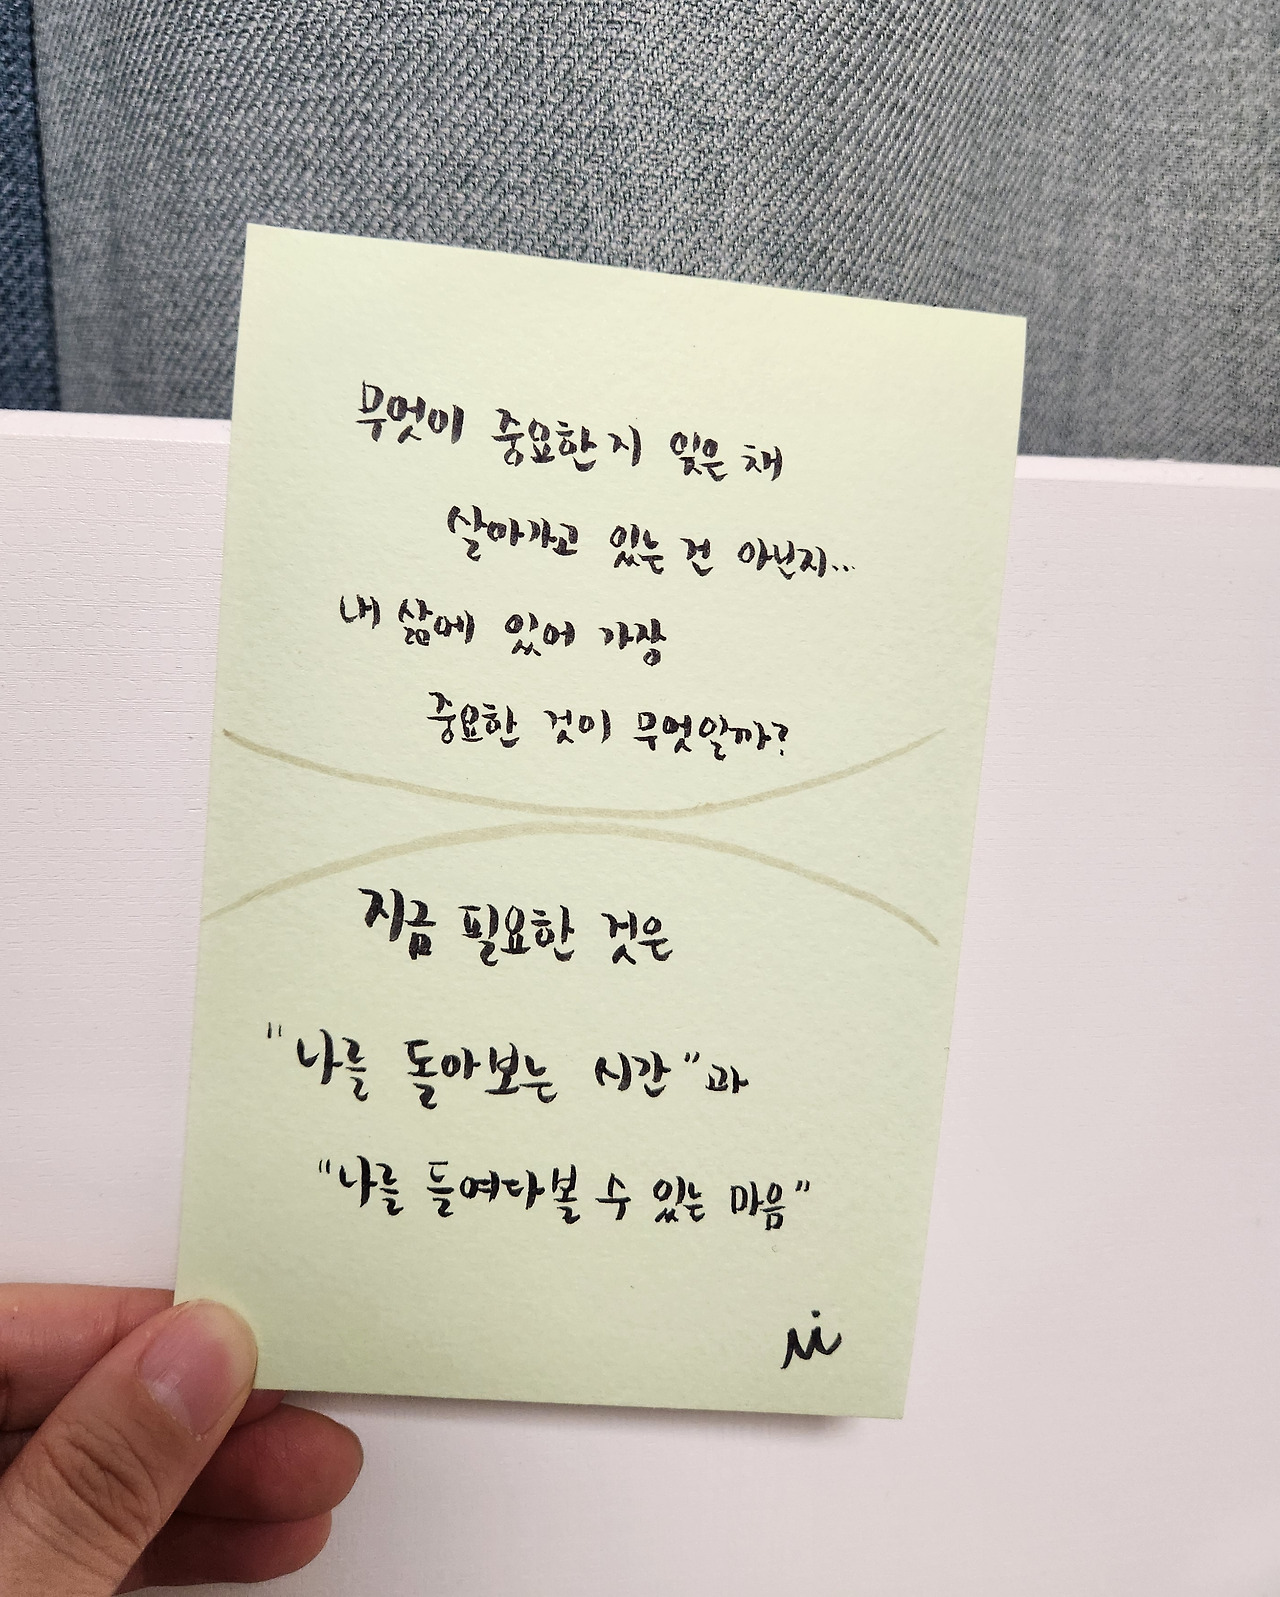 무엇이 중요한지 잊은 채
살아가고 있는 건 아닌지...
내 삶에 있어 가장
중요한 것이 무엇일까?
지금 필요한 것은
"나를 돌아보는 시간"과
"나를 들여다볼 수 있는 마음"